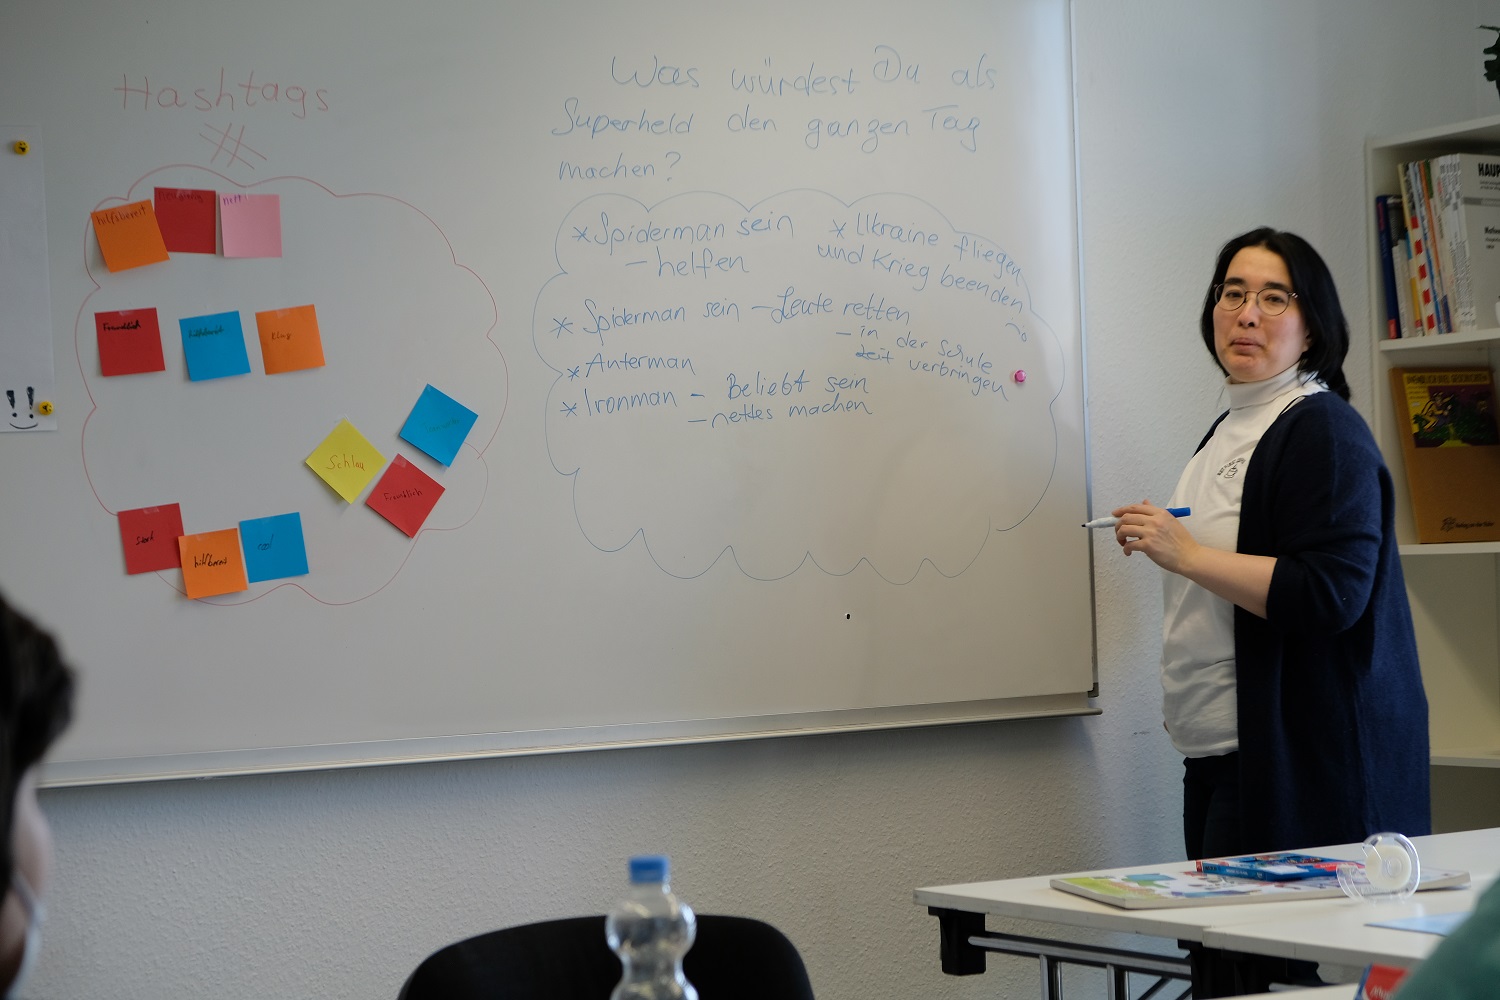 Hashtags
#
hilfsbereit
nett
Freundlich
hilfsbereit
Klug
Schlau
Freundlich
hilfbereit
Was würdest Du als
Superheld den ganzen Tag
machen?
* Spiderman sein
- helfen
* Ukraine fliegen
und Krieg beenden
* Spiderman sein - Leute retten
- in der Schule
zeit verbringen
* Anterman
* Ironman - Beliebt sein
- nettes machen
HAUP